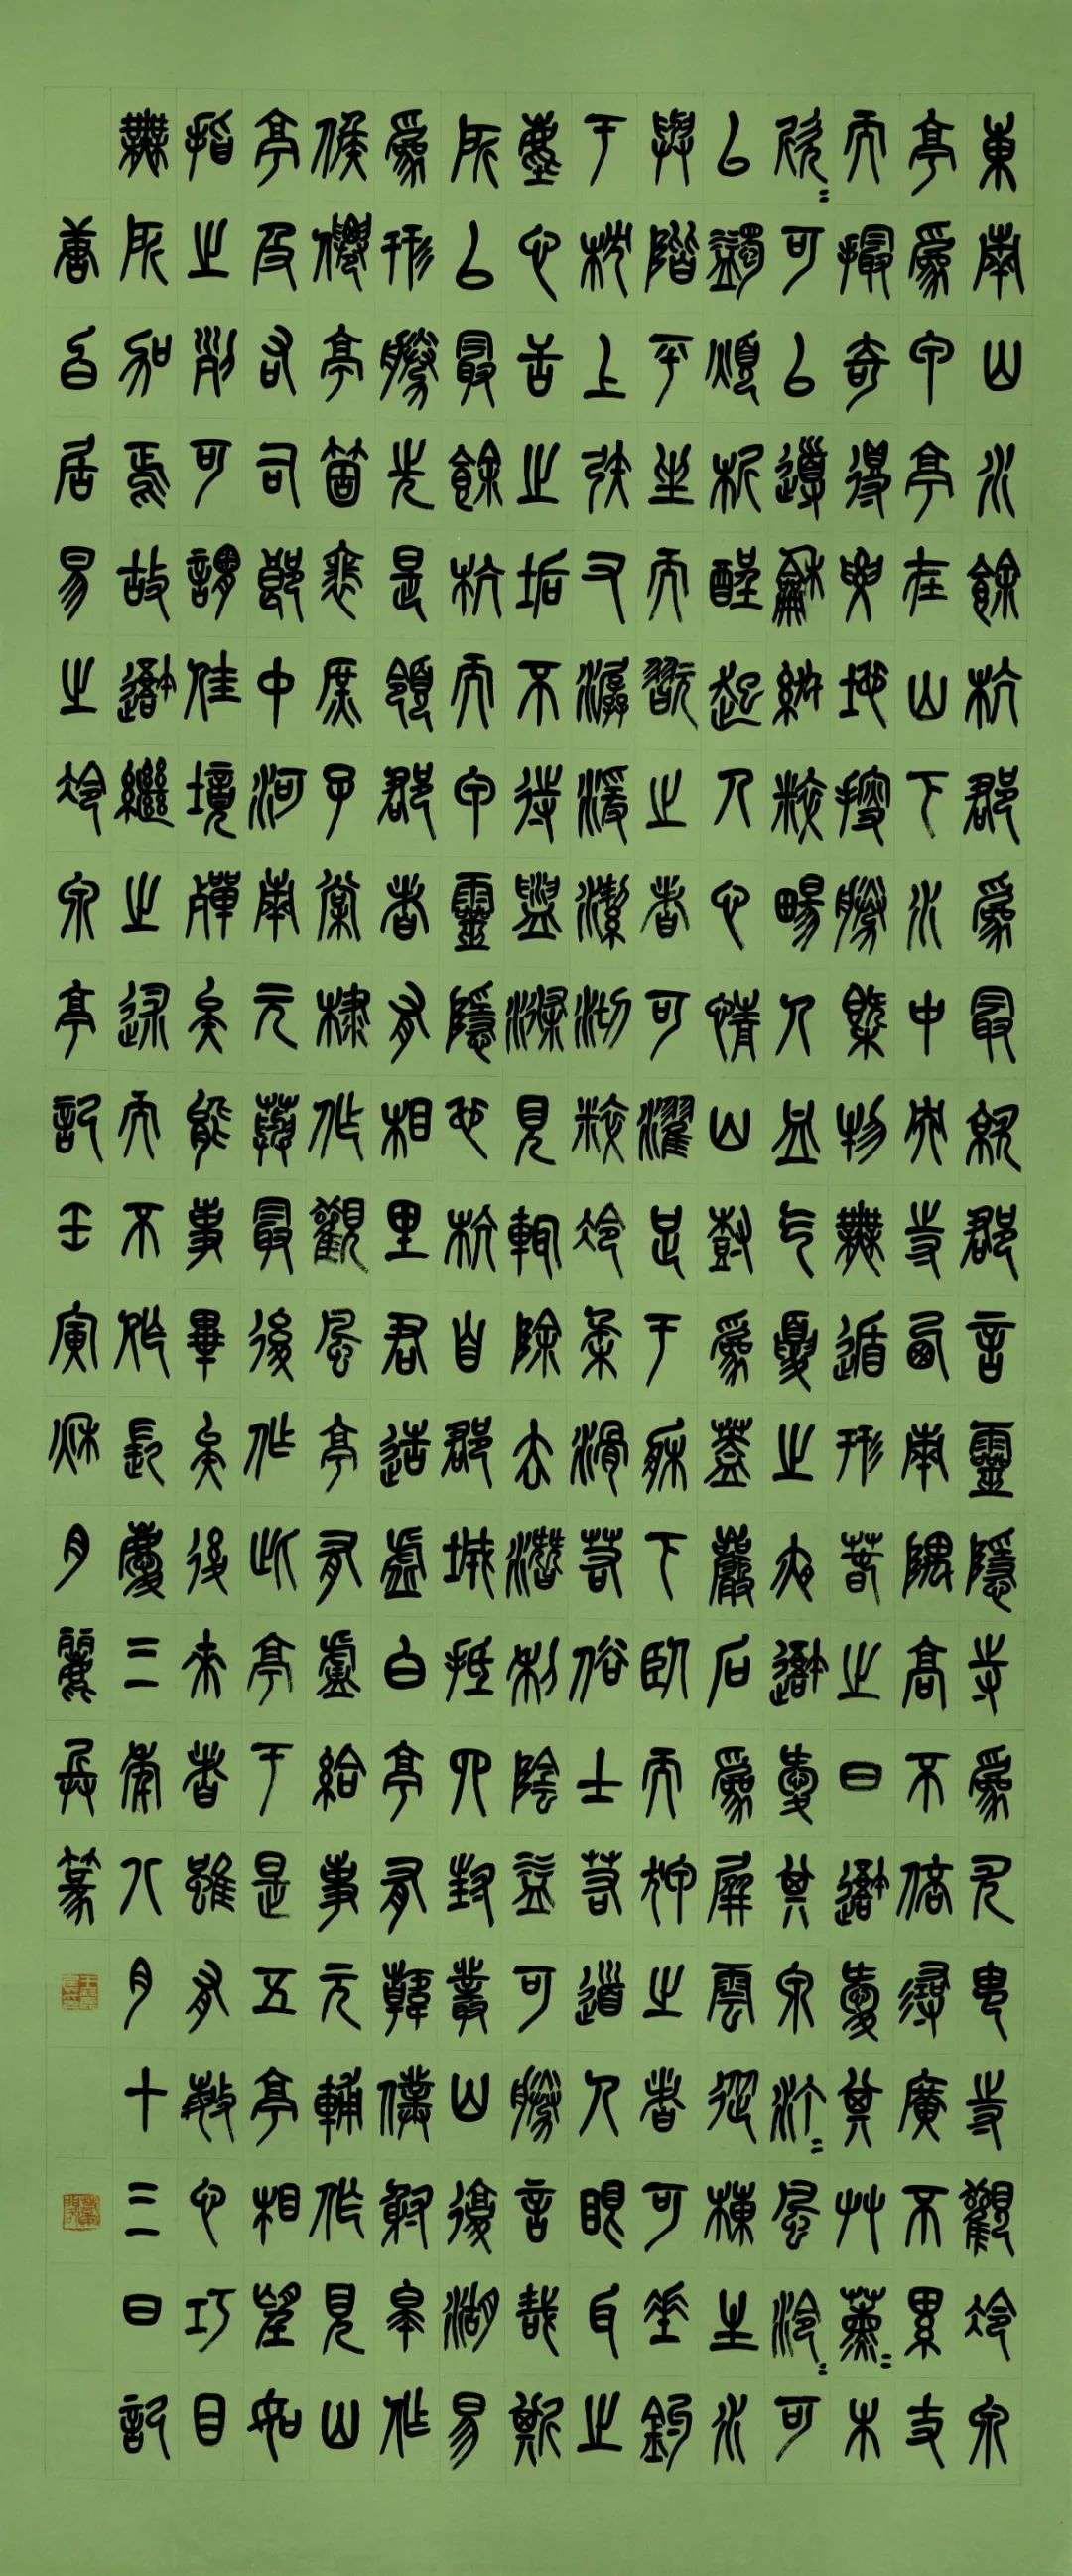 東南山水餘杭郡爲最就郡言靈隱寺爲尤由寺觀冷泉
亭爲甲亭在山下水中央寺西南隅高不倍尋廣不累丈
而撮奇得要地搜勝概物無遁形春之日吾愛其草薰=木
欣=可以導和納粹暢人血氣夏之夜吾愛其泉渟=風泠=可
以蠲煩析酲起人心情山樹爲蓋巖石爲屏雲從棟生水
與階平坐而翫之者可濯足于牀下臥而狎之者可垂釣
于枕上矧又潺湲潔沏粹冷柔滑若俗士若道人眼耳之
塵心舌之垢不待盥滌見輒除去潛利陰益可勝言哉斯
所以最餘杭而甲靈隱也杭自郡城抵四封叢山復湖易
爲形勝先是領郡者有相里君造虛白亭有韓僕射皋作
候僊亭箇裴庶子棠棣作觀風亭有盧給事元輔作見山
亭及右司郎中河南元藇最後作此亭于是五亭相望如
指之列可謂佳境殫矣能事畢矣後來者雖有敏心巧目
無所加焉故吾繼之述而不作長慶三年八月十三日記
白居易之冷泉亭記壬寅秋月麗長篆